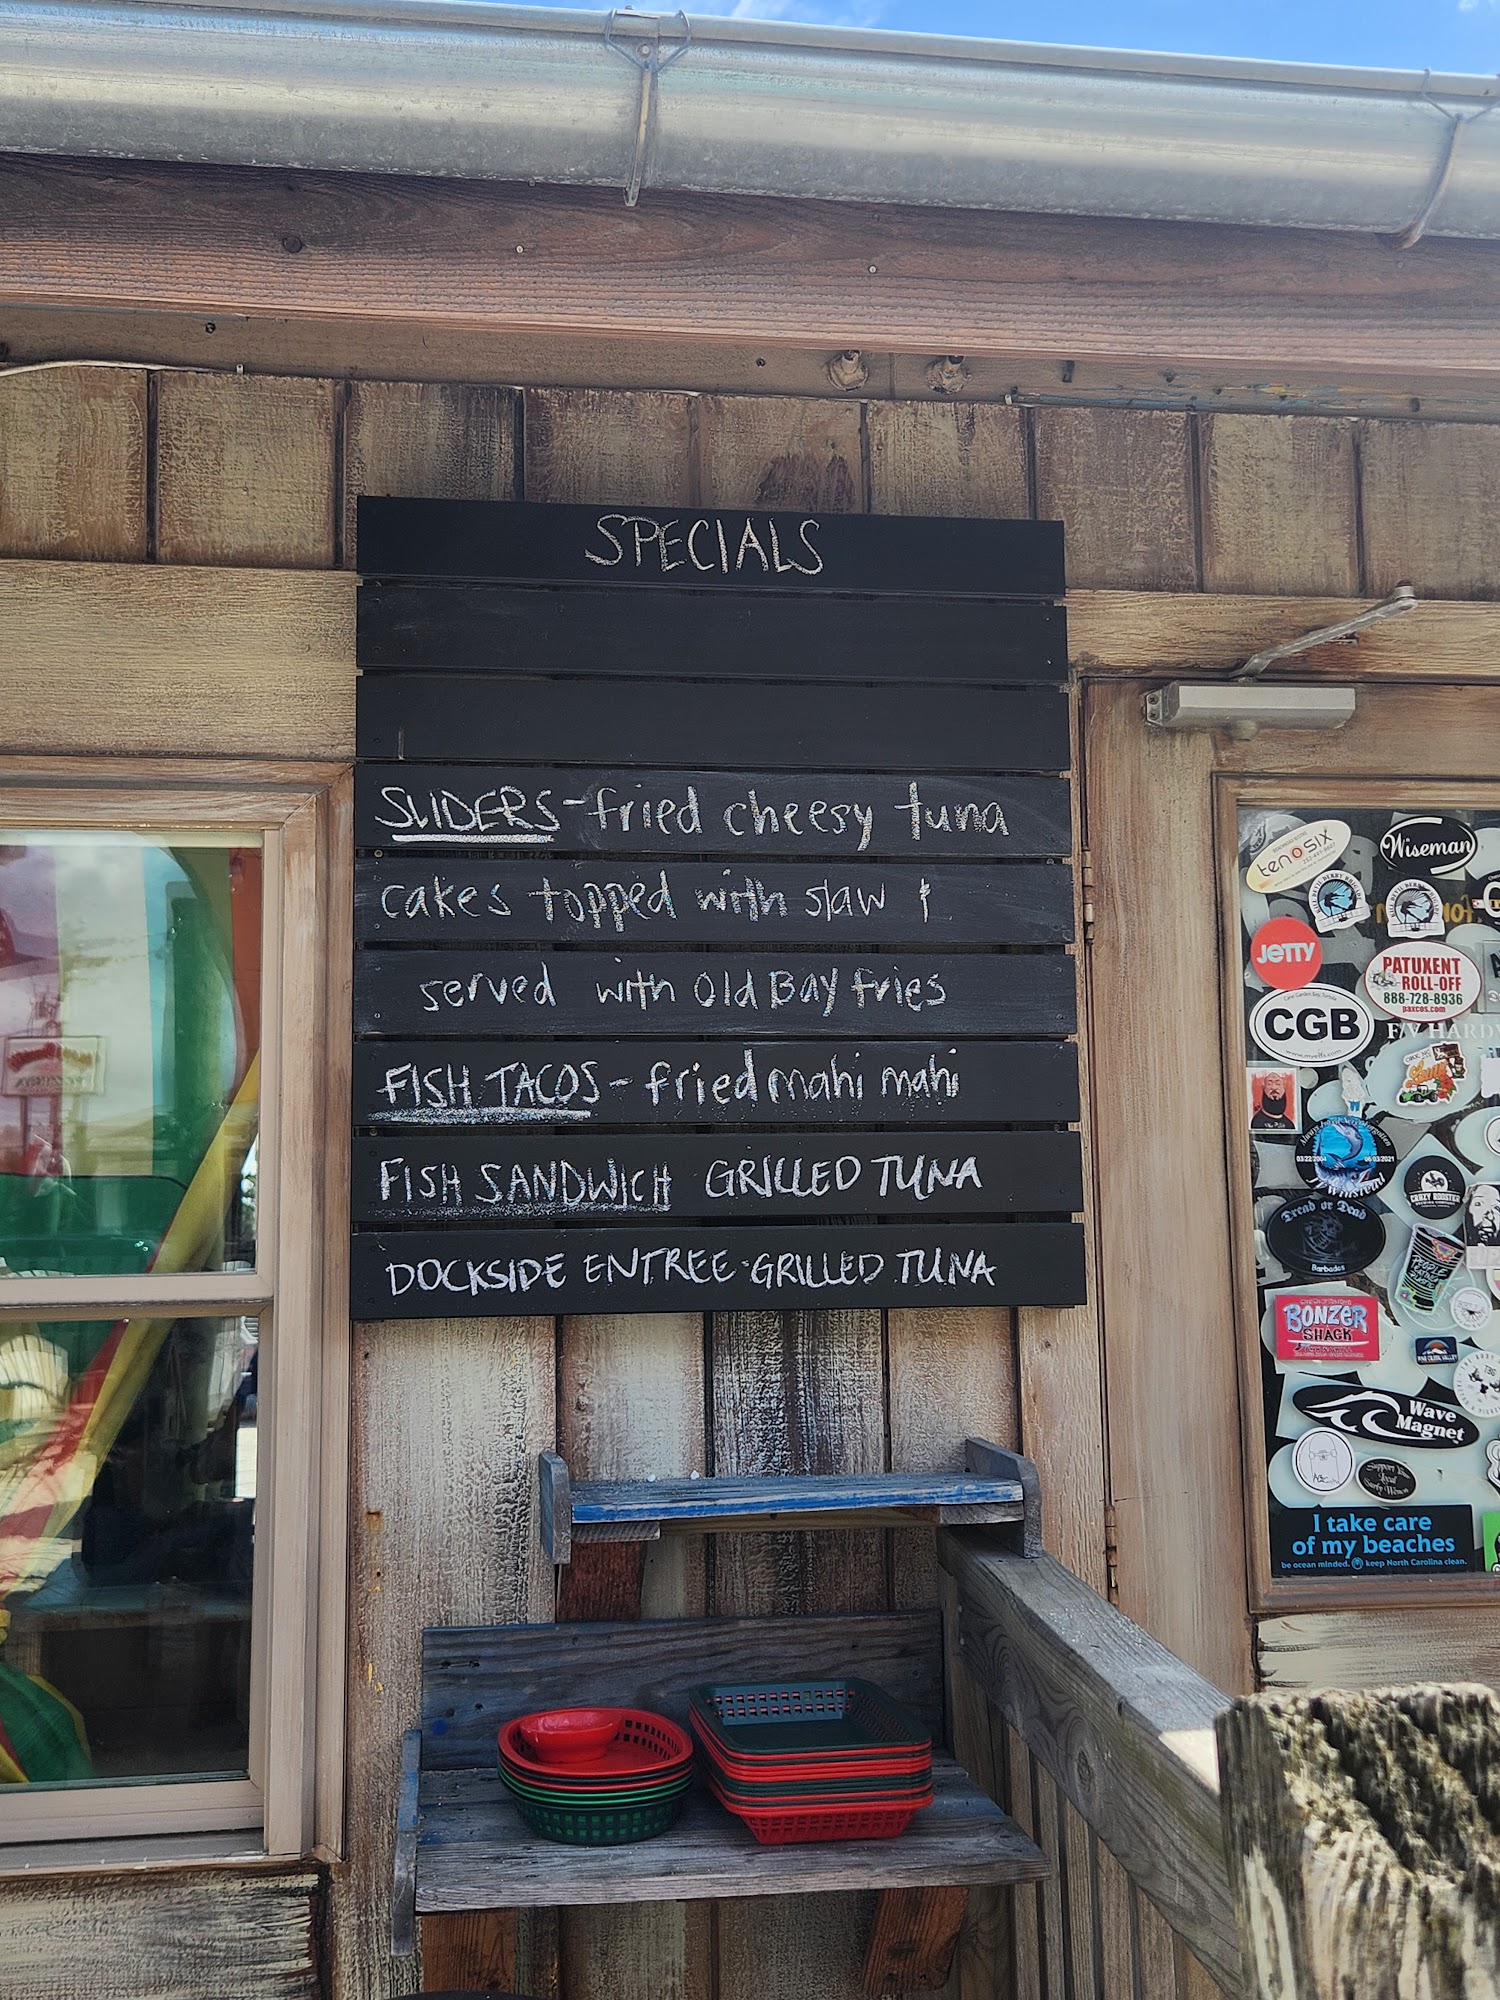 SPECIALS
SLIDERS - fried cheesy tuna
cakes topped with slaw &
served with Old Bay fries
FISH TACOS - fried mahi mahi
FISH SANDWICH GRILLED TUNA
DOCKSIDE ENTREE - GRILLED TUNA
tenosix
Wiseman
JETTY
PATUXENT
ROLL-OFF
888-728-8936
paxcos.com
CGB
F/V HARD
03/22/2004 06/03/2021
CRAZY ROOSTER
Dread or Dead
Barbados
BONZER
SHACK
Wave
Magnet
Support Your
Local
Surfy Women
I take care
of my beaches
be ocean minded. keep North Carolina clean.